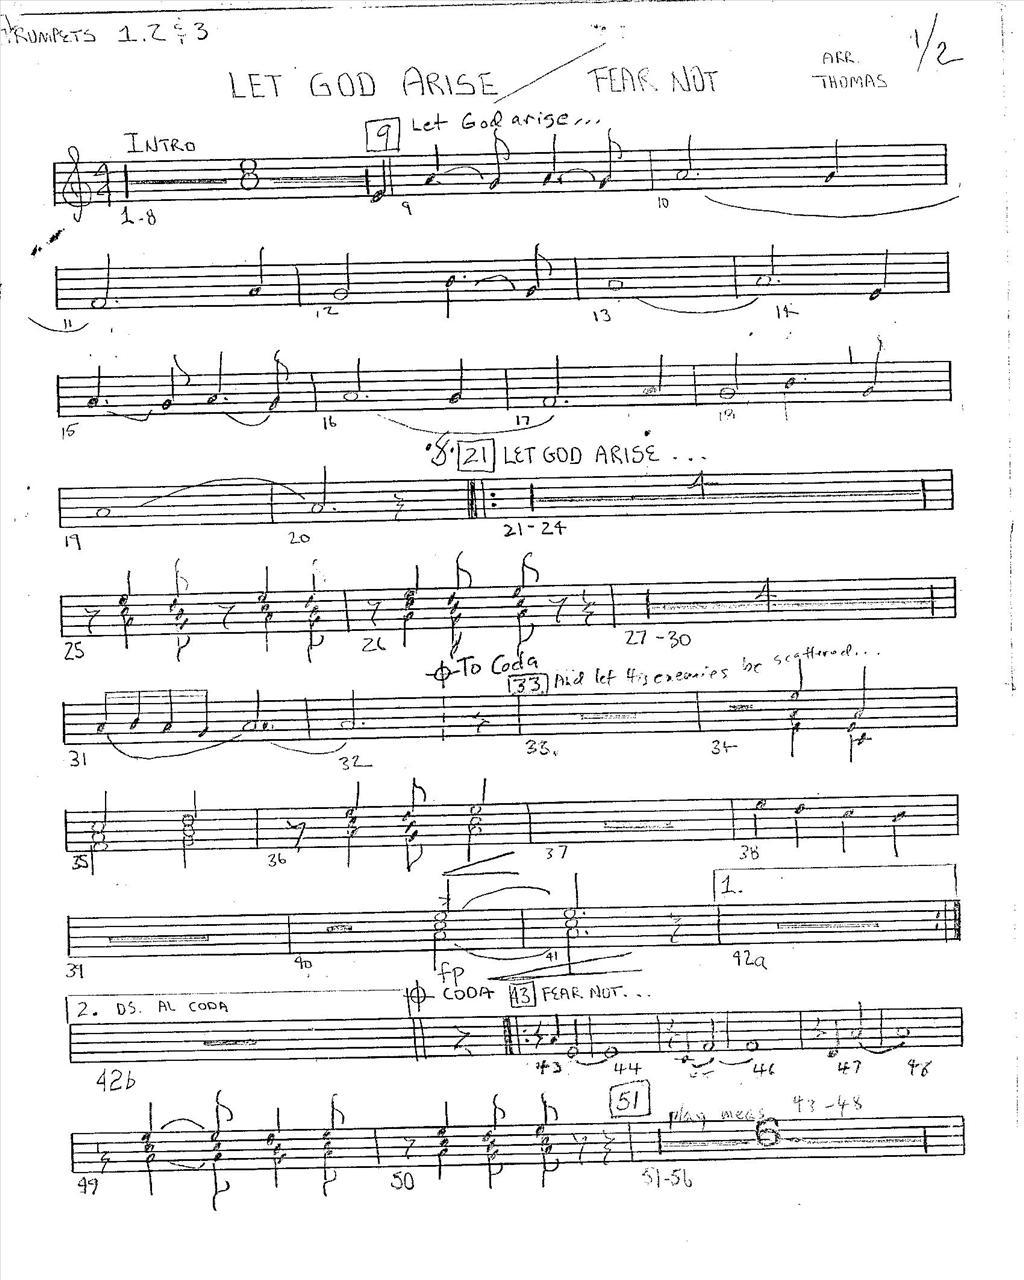 TRUMPETS 1.2 & 3
1/2
LET GOD ARISE / FEAR NOT
ARR. THOMAS
INTRO
9 Let God arise...
8
1-8 9 10
11 12 13 14
15 16 17 18
21 LET GOD ARISE ...
4
19 20 21-24
4
25 26 27-30
To Coda
33 And let His enemies be scattered...
31 32 33. 34
35 36 37 38
1.
39 40 41 42a
fp
2. DS. AL CODA
CODA 43 FEAR NOT...
42b 43 44 46 47 48
51 play meas. 43-48
6
49 50 51-56